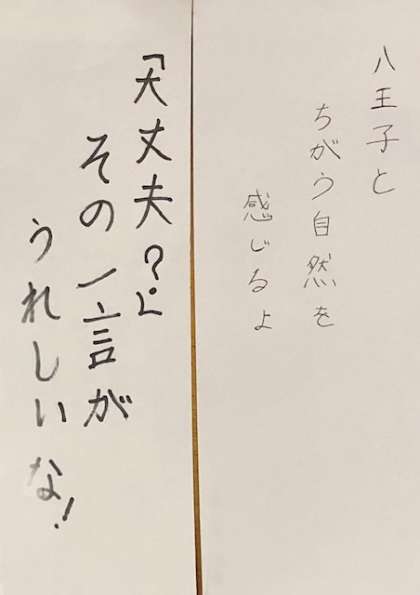 八王子と
ちがう自然を
感じるよ
「大丈夫？」
その一言が
うれしいな！